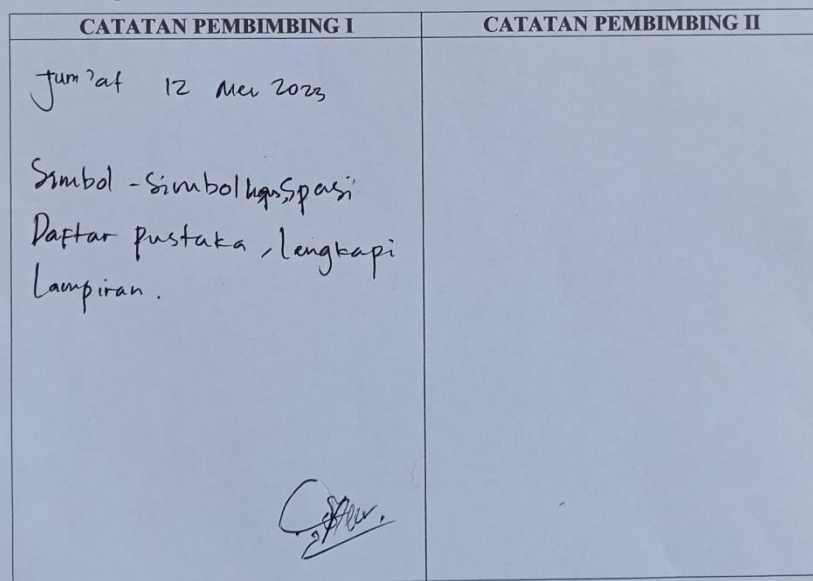 CATATAN PEMBIMBING I
CATATAN PEMBIMBING II
Jum'at 12 Mei 2023
Simbol - Simbol Spasi
Daftar Pustaka, lengkapi
Lampiran.